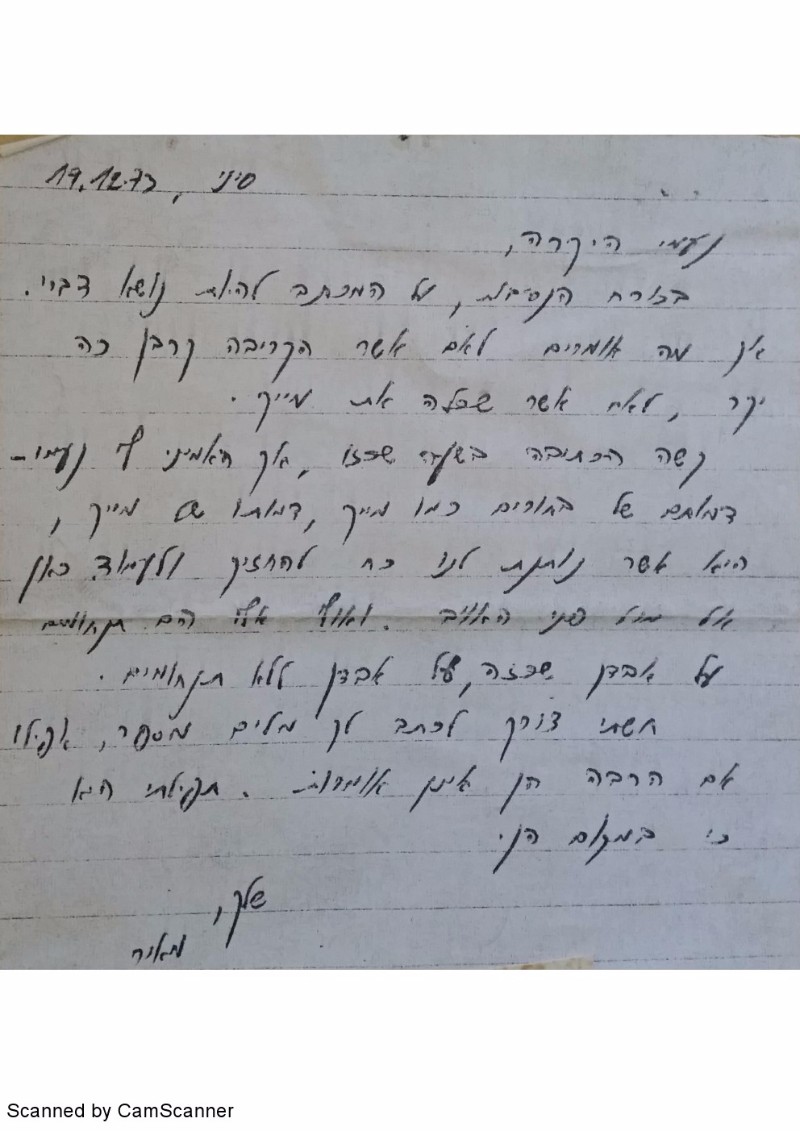 סיני, 19.12.73
נעמי היקרה,
בכורח הנסיבות, על המכתב להיות נושא דברי.
אין מה אומרים לאם אשר הקריבה קרבן כה
יקר, לאם אשר שכלה את מייק.
קשה הכתיבה בשעה שכזו, אך האמיני לי נעמי –
דימותם של בחורים כמו מייק, דמותו של מייק,
היא אשר נותנת לנו כח להחזיק ולעמוד כאן
אל מול פני האויב. ואולי אלה הם תנחומים
על אבדן שכזה, על אבדן ללא תנחומים.
חשתי צורך לכתב לך מלים מספר, אפילו
אם הרבה הן אינן אומרות. תפילתי היא
כי במקום הן.
שלך,
מאיר
Scanned by CamScanner